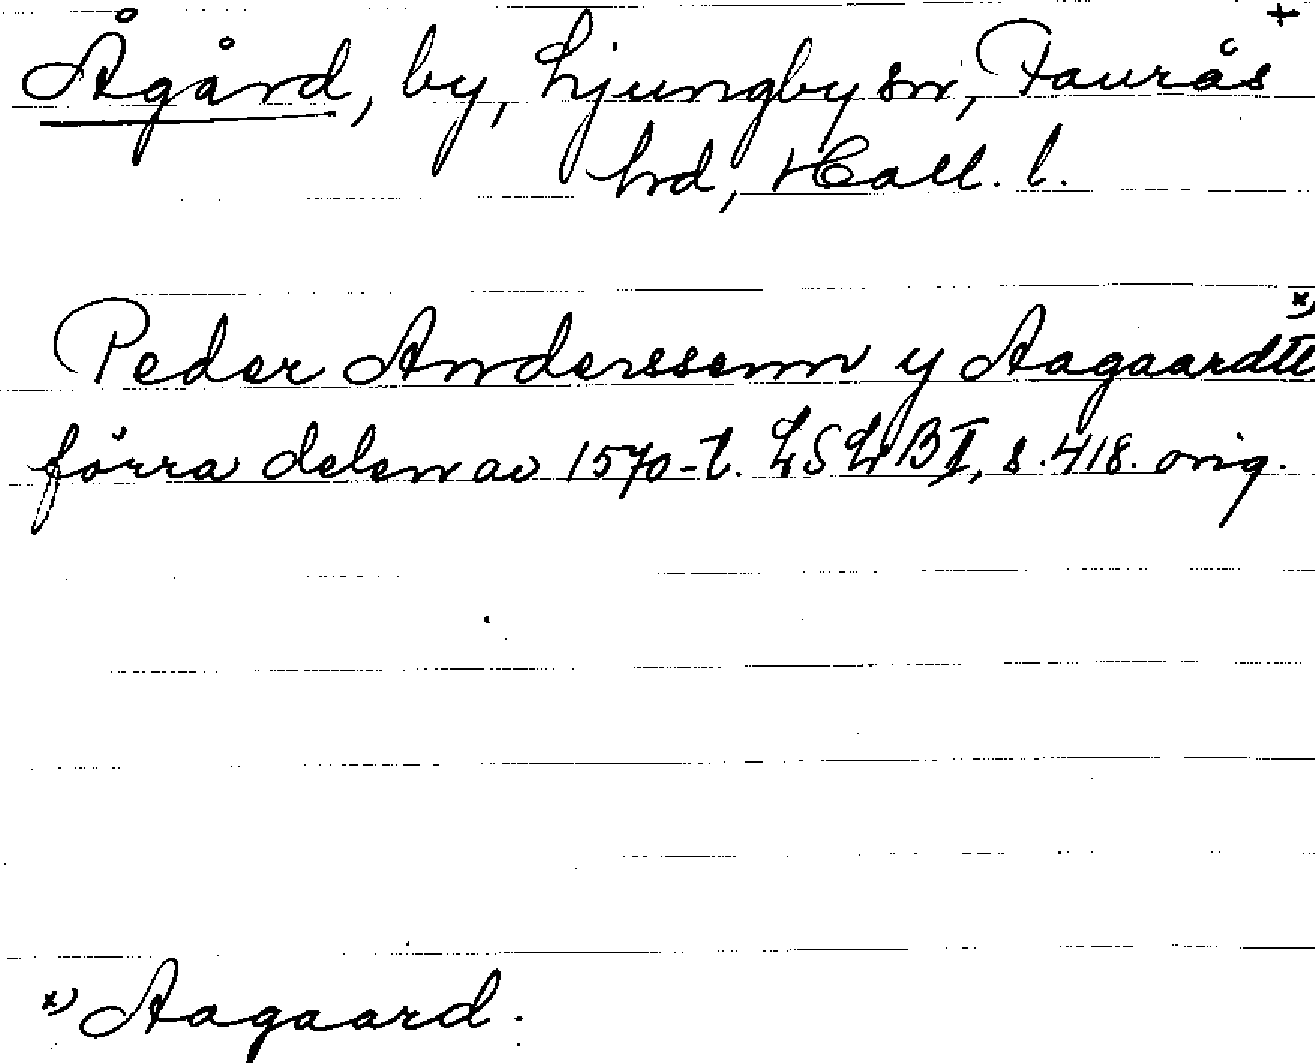 Ågård, by, Ljungby sn, Faurås +
hd, Hall. l.
Peder Anderssenn y Aagaardtt x)
förra delen av 1570-t. LSLB I, s. 418. orig.
x) Aagaard.